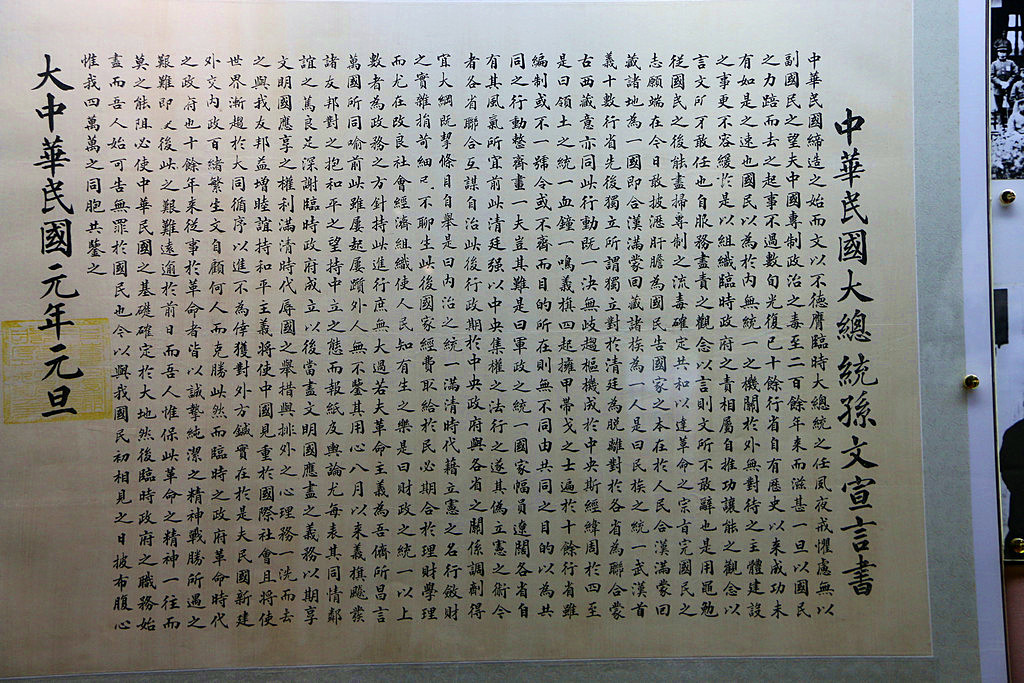 中華民國大總統孫文宣言書
中華民國締造之始而文以不德膺臨時大總統之任夙夜戒懼慮無以
副國民之望夫中國專制政治之毒至二百餘年來而滋甚一旦以國民
之力踣而去之起事不過數旬光復已十餘行省自有歷史以來成功未
有如是之速也國民以為於內無統一之機關於外無對待之主體建設
之事更不容緩於是以組織臨時政府之責相屬自推功讓能之觀念以
言文所不敢任也自服務盡責之觀念以言則文所不敢辭也是用黽勉
從國民之後能盡掃專制之流毒確定共和以達革命之宗旨完國民之
志願端在今日敢披瀝肝膽為國民告國家之本在於人民合漢滿蒙回
藏諸地為一國即合漢滿蒙回藏諸族為一人是曰民族之統一武漢首
義十數行省先後獨立所謂獨立對於清廷為脫離對於各省為聯合蒙
古西藏意亦同此行動既一決無歧趨樞機成於中央斯經緯周於四至
是曰領土之統一血鐘一鳴義旗四起擁甲帶戈之士遍於十餘行省雖
編制或不一號令或不齊而目的所在則無不同由共同之目的以為共
同之行動整齊畫一夫豈其難是曰軍政之統一國家幅員遼闊各省自
有其風氣所宜前此清廷强以中央集權之法行之遂其偽立憲之術今
者各省聯合互謀自治此後行政期於中央政府與各省之關係調劑得
宜大綱既挈條目自舉是曰內治之統一滿清時代藉立憲之名行斂財
之實雜捐苛細民不聊生此後國家經費取給於民必期合於理財學理
而尤在改良社會經濟組織使人民知有生之樂是曰財政之統一以上
數者為政務之方針持此進行庶無大過若夫革命主義為吾儕所昌言
萬國所同喻前此雖屢起屢躓外人無不鑒其用心八月以來義旗飈發
諸友邦對之抱和平之望持中立之態而報紙及輿論尤每表其同情鄰
誼之篤良足深謝臨時政府成立以後當盡文明國應盡之義務以期享
文明國應享之權利滿清時代辱國之舉措與排外之心理務一洗而去
之與我友邦益增睦誼持和平主義將使中國見重於國際社會且將使
世界漸趨於大同循序以進不為倖獲對外方鍼實在於是夫民國新建
外交內政百緒繁生文自顧何人而克勝此然而臨時之政府革命時代
之政府也十餘年來從事於革命者皆以誠摯純潔之精神戰勝所遇之
艱難即後此之艱難遠逾於前日而吾人惟保此革命之精神一往而
莫之能阻必使中華民國之基礎確定於大地然後臨時政府之職務始
盡而吾人始可告無罪於國民也今以與我國民初相見之日披布腹心
惟我四萬萬之同胞共鑒之
大中華民國元年元旦